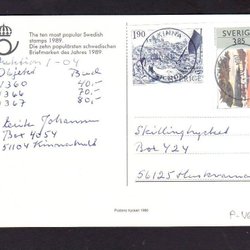 The ten most popular Swedish
stamps 1989.
Die zehn populärsten schwedischen
Briefmarken des Jahres 1989.
1-04
Objekt
1360 40.-
1366 70.-
1367 80.-
Box 4054
51104 Kinnahult
1.90
KINNA
SVERIGE
SVERIGE
3.85
Skillingtrycket
Box 424
56125 Huskvarna
Postens tryckeri 1989